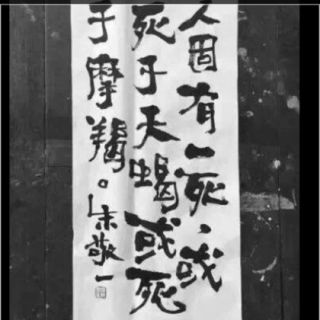 人固有一死，或
死于天蝎或死
于摩羯。朱敬一